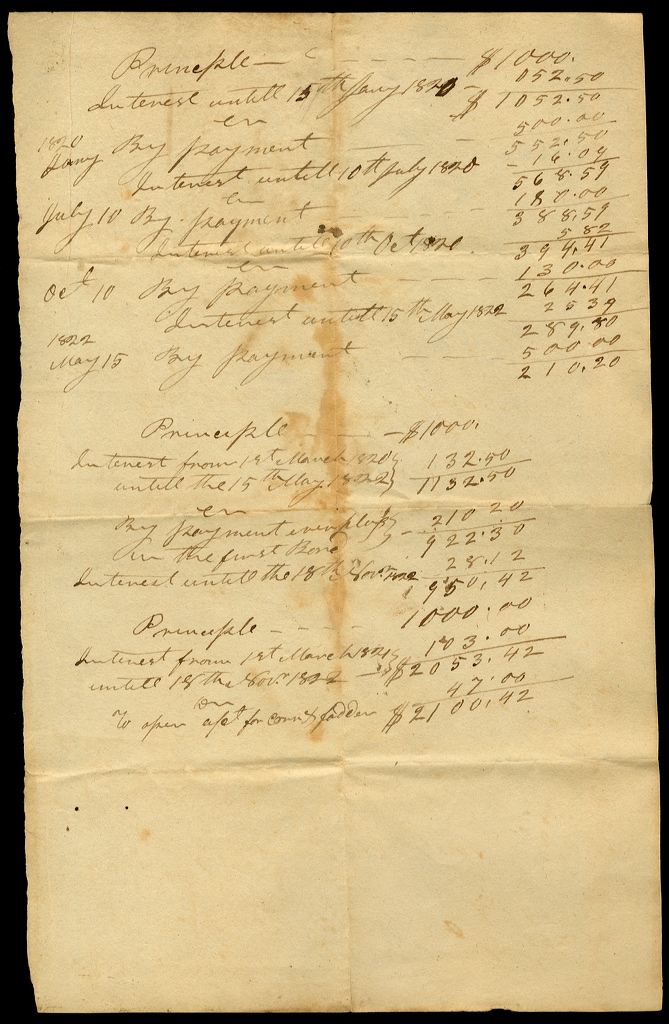 Principle — $1000.
Interest untill 15th Jany 1820 — 052.50
$1052.50
Cr
1820
Jany By payment 500.00
552.50
Interest untill 10th July 1820 — 16.09
568.59
Cr
July 10 By payment 180.00
388.59
Interest untill 10th Oct 1820. 582
394.41
Cr
Oct 10 By payment 130.00
264.41
Interest untill 15th May 1822 2539
289.80
1822
May 15 By payment 500.00
210.20
Principle — $1000.
Interest from 1st March 1820
untill the 15th May 1822 } 132.50
1132.50
Cr
By payment overplus
in the first Bond } — 210 20
922.30
Interest untill the 18th Novr. 1822 28.12
950.42
Principle — 1000.00
Interest from 1st March 1821
untill 18th Novr. 1822 } 103.00
$2053.42
Dr
To open acpt for corn & fodder 47.00
$2100.42